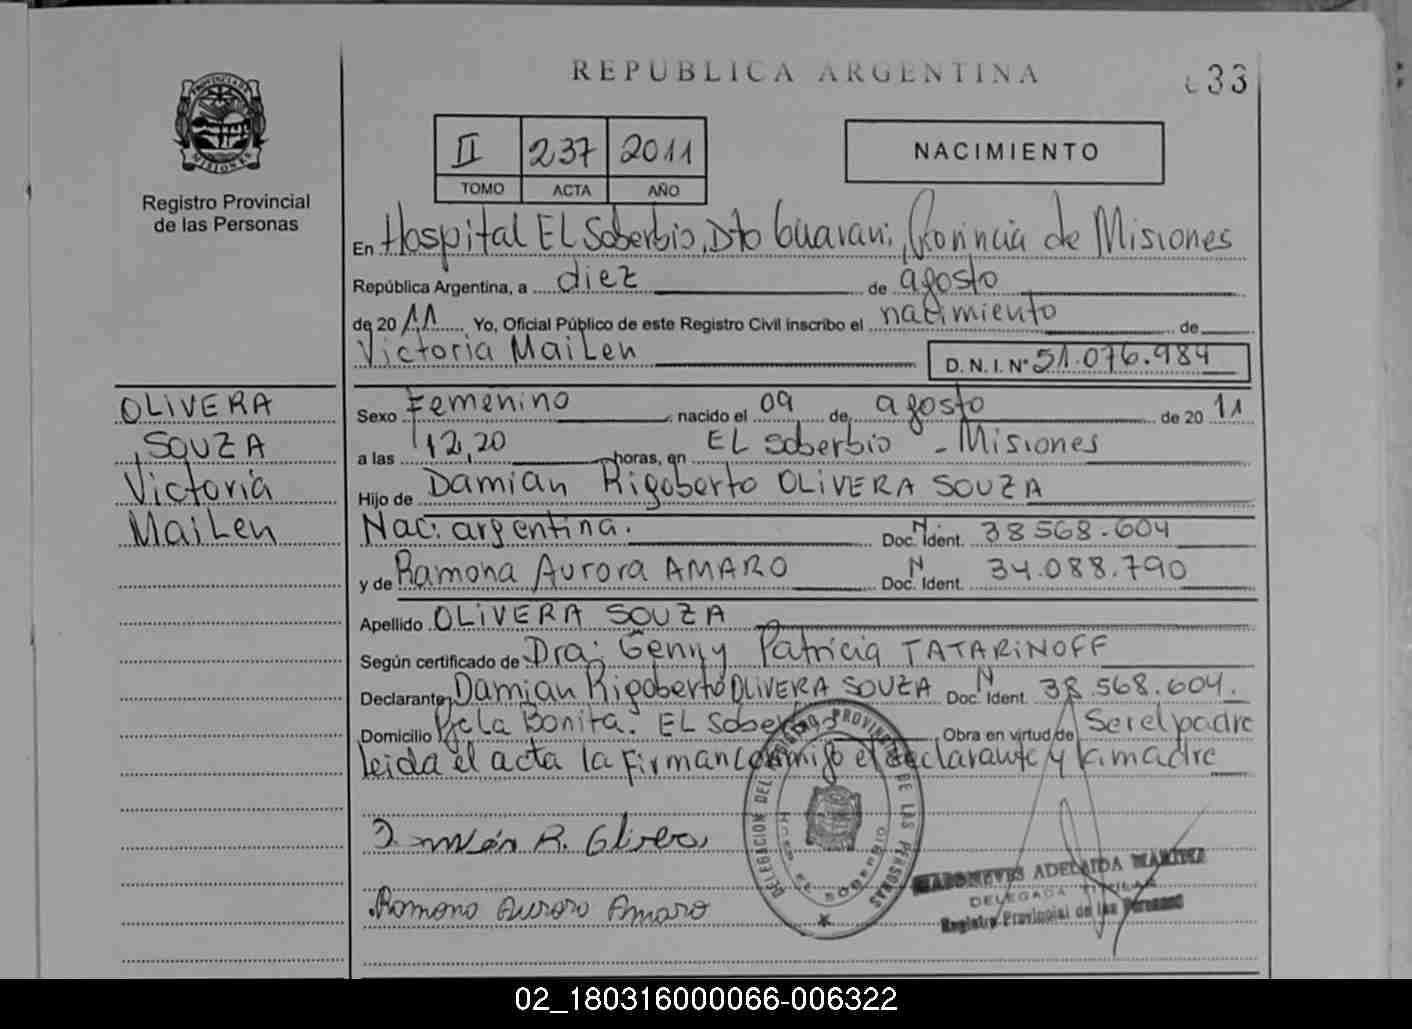 REPUBLICA ARGENTINA
33
Registro Provincial
de las Personas
II 237 2011
TOMO ACTA AÑO
NACIMIENTO
En Hospital EL Soberbio, Dto Guarani, Provincia de Misiones
República Argentina, a diez de agosto
de 2011 Yo, Oficial Público de este Registro Civil inscribo el nacimiento de
Victoria MaiLen D. N. I. Nº 51.076.984
OLIVERA
SOUZA
Victoria
MaiLen
Sexo Femenino nacido el 09 de agosto de 2011
a las 12,20 horas, en EL Soberbio - Misiones
Hijo de Damian Rigoberto OLIVERA SOUZA
Nac: argentina. Doc. Ident. N 38 568.604
y de Ramona Aurora AMARO Doc. Ident. N 34.088.790
Apellido OLIVERA SOUZA
Según certificado de Dra: Genny Patricia TATARINOFF
Declarante Damian Rigoberto OLIVERA SOUZA Doc. Ident. N 38.568.604.
Domicilio La Bonita. EL Soberbio Obra en virtud de Ser el padre
leida el acta la firman conmigo el declarante y la madre
Damián R. Olivera
Ramona Aurora Amaro
DELEGACION DEL REGISTRO PROVINCIAL DE LAS PERSONAS
ADELAIDA
DELEGADA TITULAR
Registro Provincial de las Personas
02_180316000066-006322